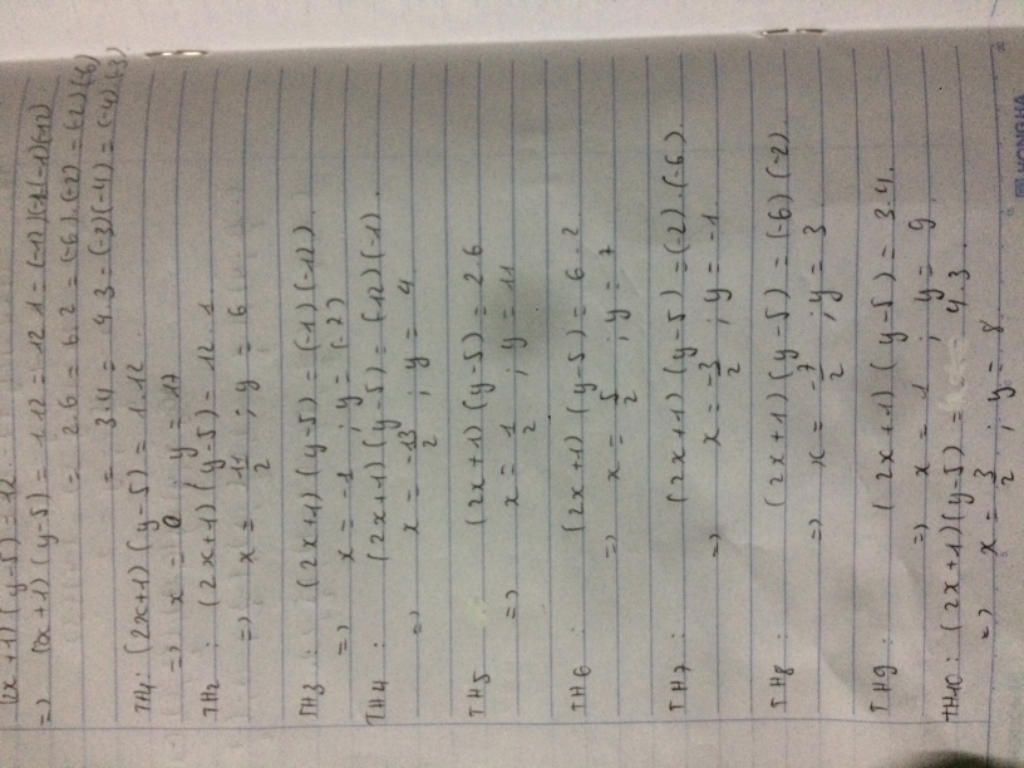 (2x+1)(y-5)=12
=> (2x+1)(y-5) = 1.12 = 12.1 = (-12)(-1)(-1)(-12)
= 2.6 = 6.2 = (-6).(-2) = (-2)(-6)
= 3.4 = 4.3 = (-3)(-4) = (-4).(-3)
TH1: (2x+1)(y-5) = 1.12
=> x = 0 y = 17
TH2: (2x+1)(y-5) = 12.1
=> x = 11/2 ; y = 6
TH3: (2x+1)(y-5) = (-1)(-12)
=> x = -1 ; y = (-7)
TH4: (2x+1)(y-5) = (-12)(-1).
=> x = -13/2 ; y = 4
TH5 (2x+1)(y-5) = 2.6
=> x = 1/2 ; y = 11
TH6: (2x+1)(y-5) = 6.2
=> x = 5/2 ; y = 7
TH7: (2x+1)(y-5) = (-2).(-6).
=> x = -3/2 ; y = -1
TH8: (2x+1)(y-5) = (-6)(-2)
=> x = -7/2 ; y = 3
TH9: (2x+1)(y-5) = 3.4.
=> x = 1 ; y = 9
TH10: (2x+1)(y-5) = 4.3.
=> x = 3/2 ; y = 8
HONG HA